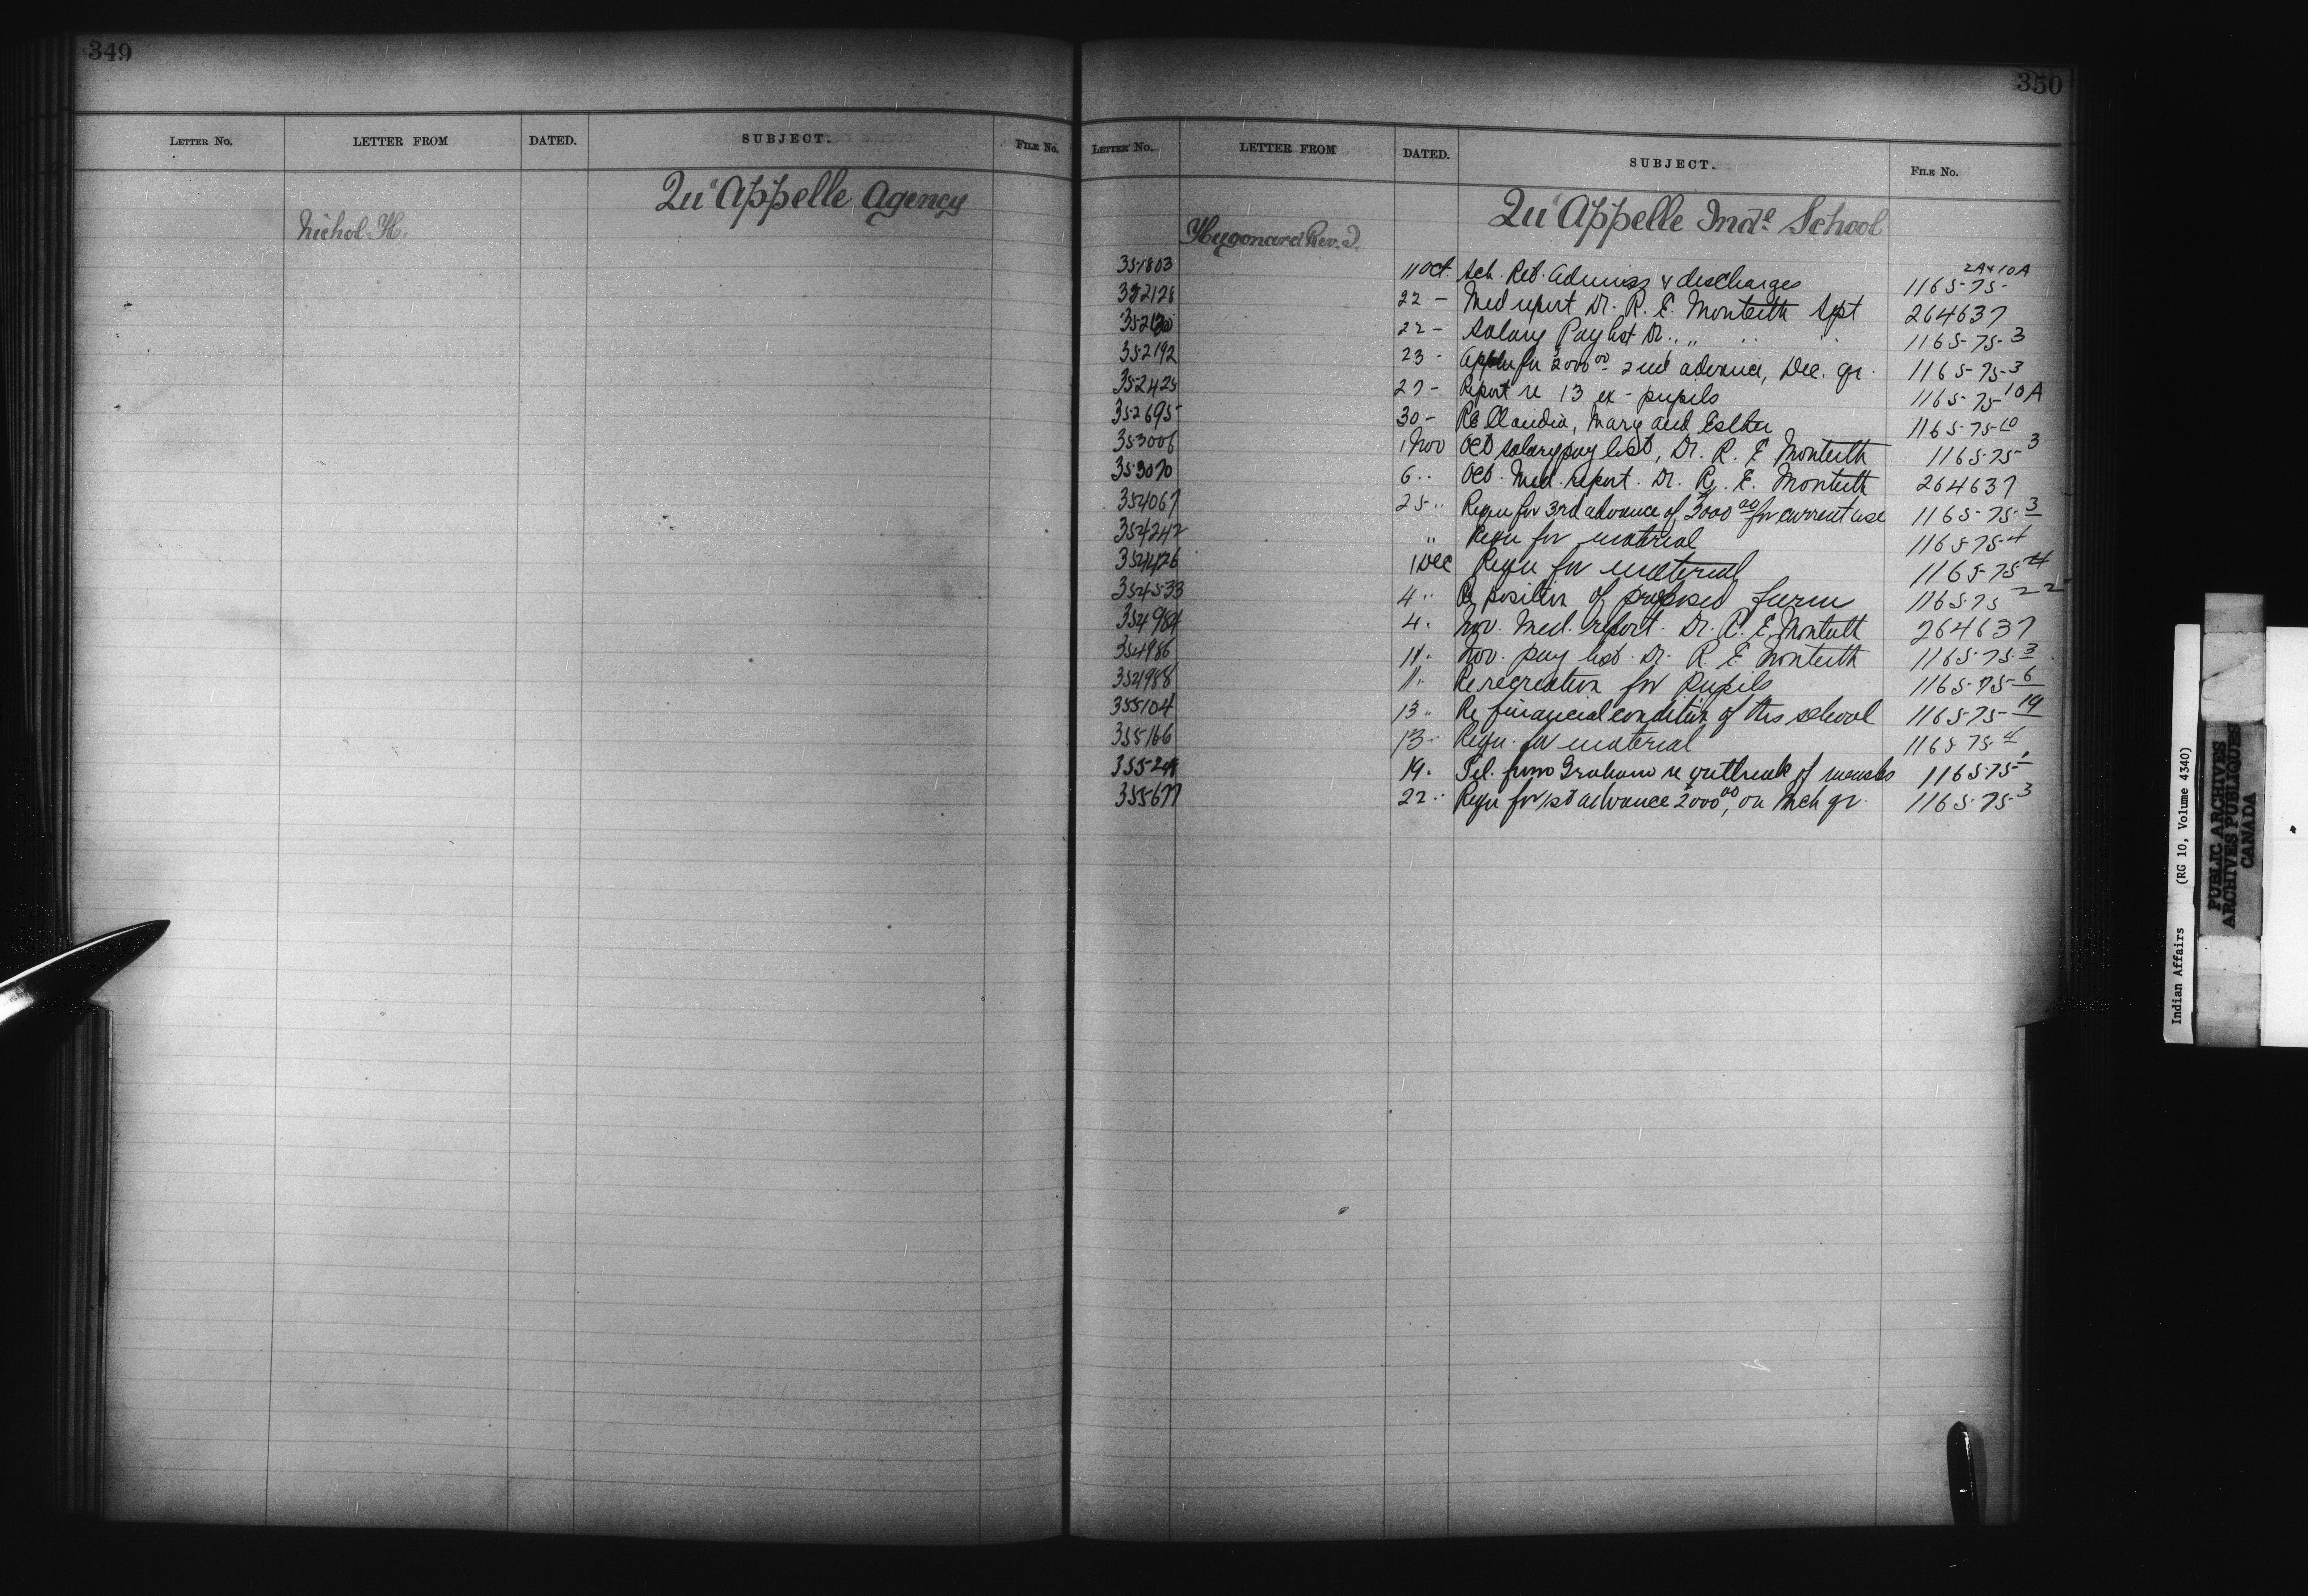 349
LETTER NO. LETTER FROM DATED. SUBJECT. FILE NO.
Qu'Appelle Agency
Nichol H.
350
LETTER NO. LETTER FROM DATED. SUBJECT. FILE NO.
Qu'Appelle Indl School
Hugonard Rev. J.
351803 11 Oct. Sch. Ret. Admiss & discharges 116575 2A & 10A
352128 22 - Med report Dr. R. E. Monteith Spt 264637
352130 22 - Salary Pay list Dr. " " " 11657-3
352192 23 - Appln for 2000 00 - 2nd advance, Dec. qr. 11657-3
352425 27 - Report re 13 ex-pupils 11657-10A
352695 30 - Re Claudia, Mary and Esther 11657-10
353006 1 Nov Oct salary pay list, Dr. R. E Monteith 11657-3
353070 6 " Oct. Med. report. Dr. R. E. Monteith 264637
354067 25 " Requn for 3rd advance of 2000 00 for current use 11657-3
354242 " Requn for material 11657-4
354426 1 Dec Requn for material 11657-4
354533 4 " Re position of proposed farm 11657-22
354984 4 " Nov. Med. report. Dr. R. E. Monteith 264637
354986 11 " Nov. pay list. Dr. R. E Monteith 11657-3
354988 11 " Re recreation for Pupils 11657-6
355104 13 " Re financial condition of this school 11657-19
355166 13 " Requn. for material 11657-4
19 " Tel. from Graham re outbreak of measles 11657-1
355677 22 " Requn for 1st advance 2000 00, on Mch qr. 11657-3
Indian Affairs (RG 10, Volume 4340)
PUBLIC ARCHIVES
ARCHIVES PUBLIQUES
CANADA